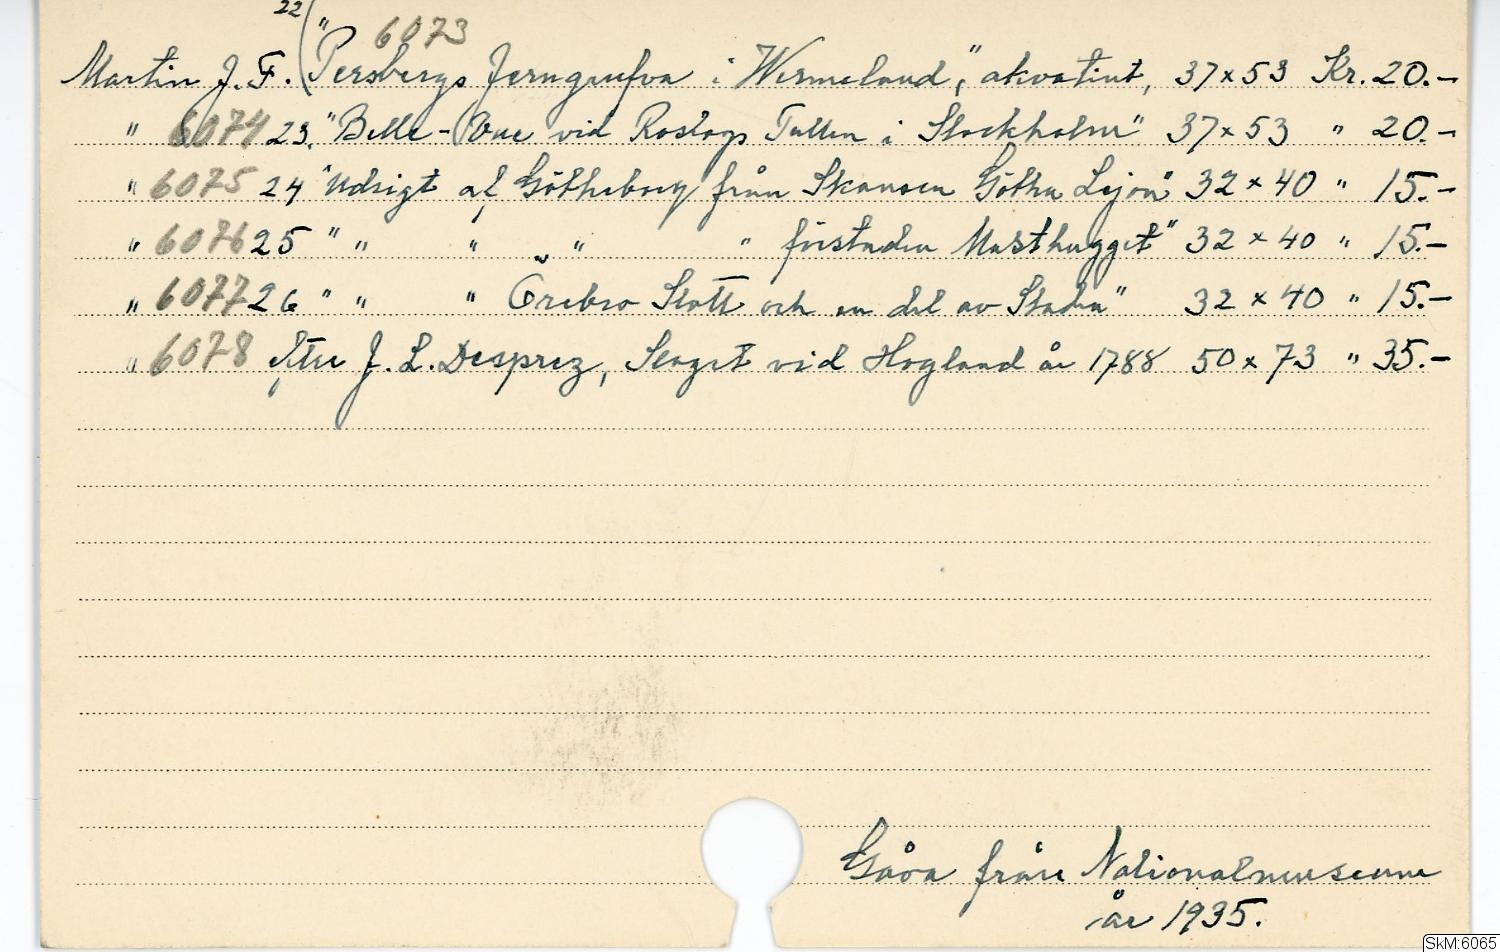 22 6073
Martin J. F. ("Persbergs Jerngrufva i Wermeland", akvatint, 37x53 Kr. 20.-
" 6074 23. "Belle-Vue vid Roslags Tullen i Stockholm" 37x53 " 20.-
" 6075 24 "Udsigt af Götheborg från Skansen Götha Lejon" 32 x 40 " 15.-
" 6076 25 " " " " " " förstaden Masthugget" 32 x 40 " 15.-
" 6077 26 " " " Örebro Slott och en del av Staden" 32 x 40 " 15.-
" 6078 efter J. L. Desprez, Slaget vid Hogland år 1788 50 x 73 " 35.-
Gåva från Nationalmuseum
år 1935.
SkM:6065